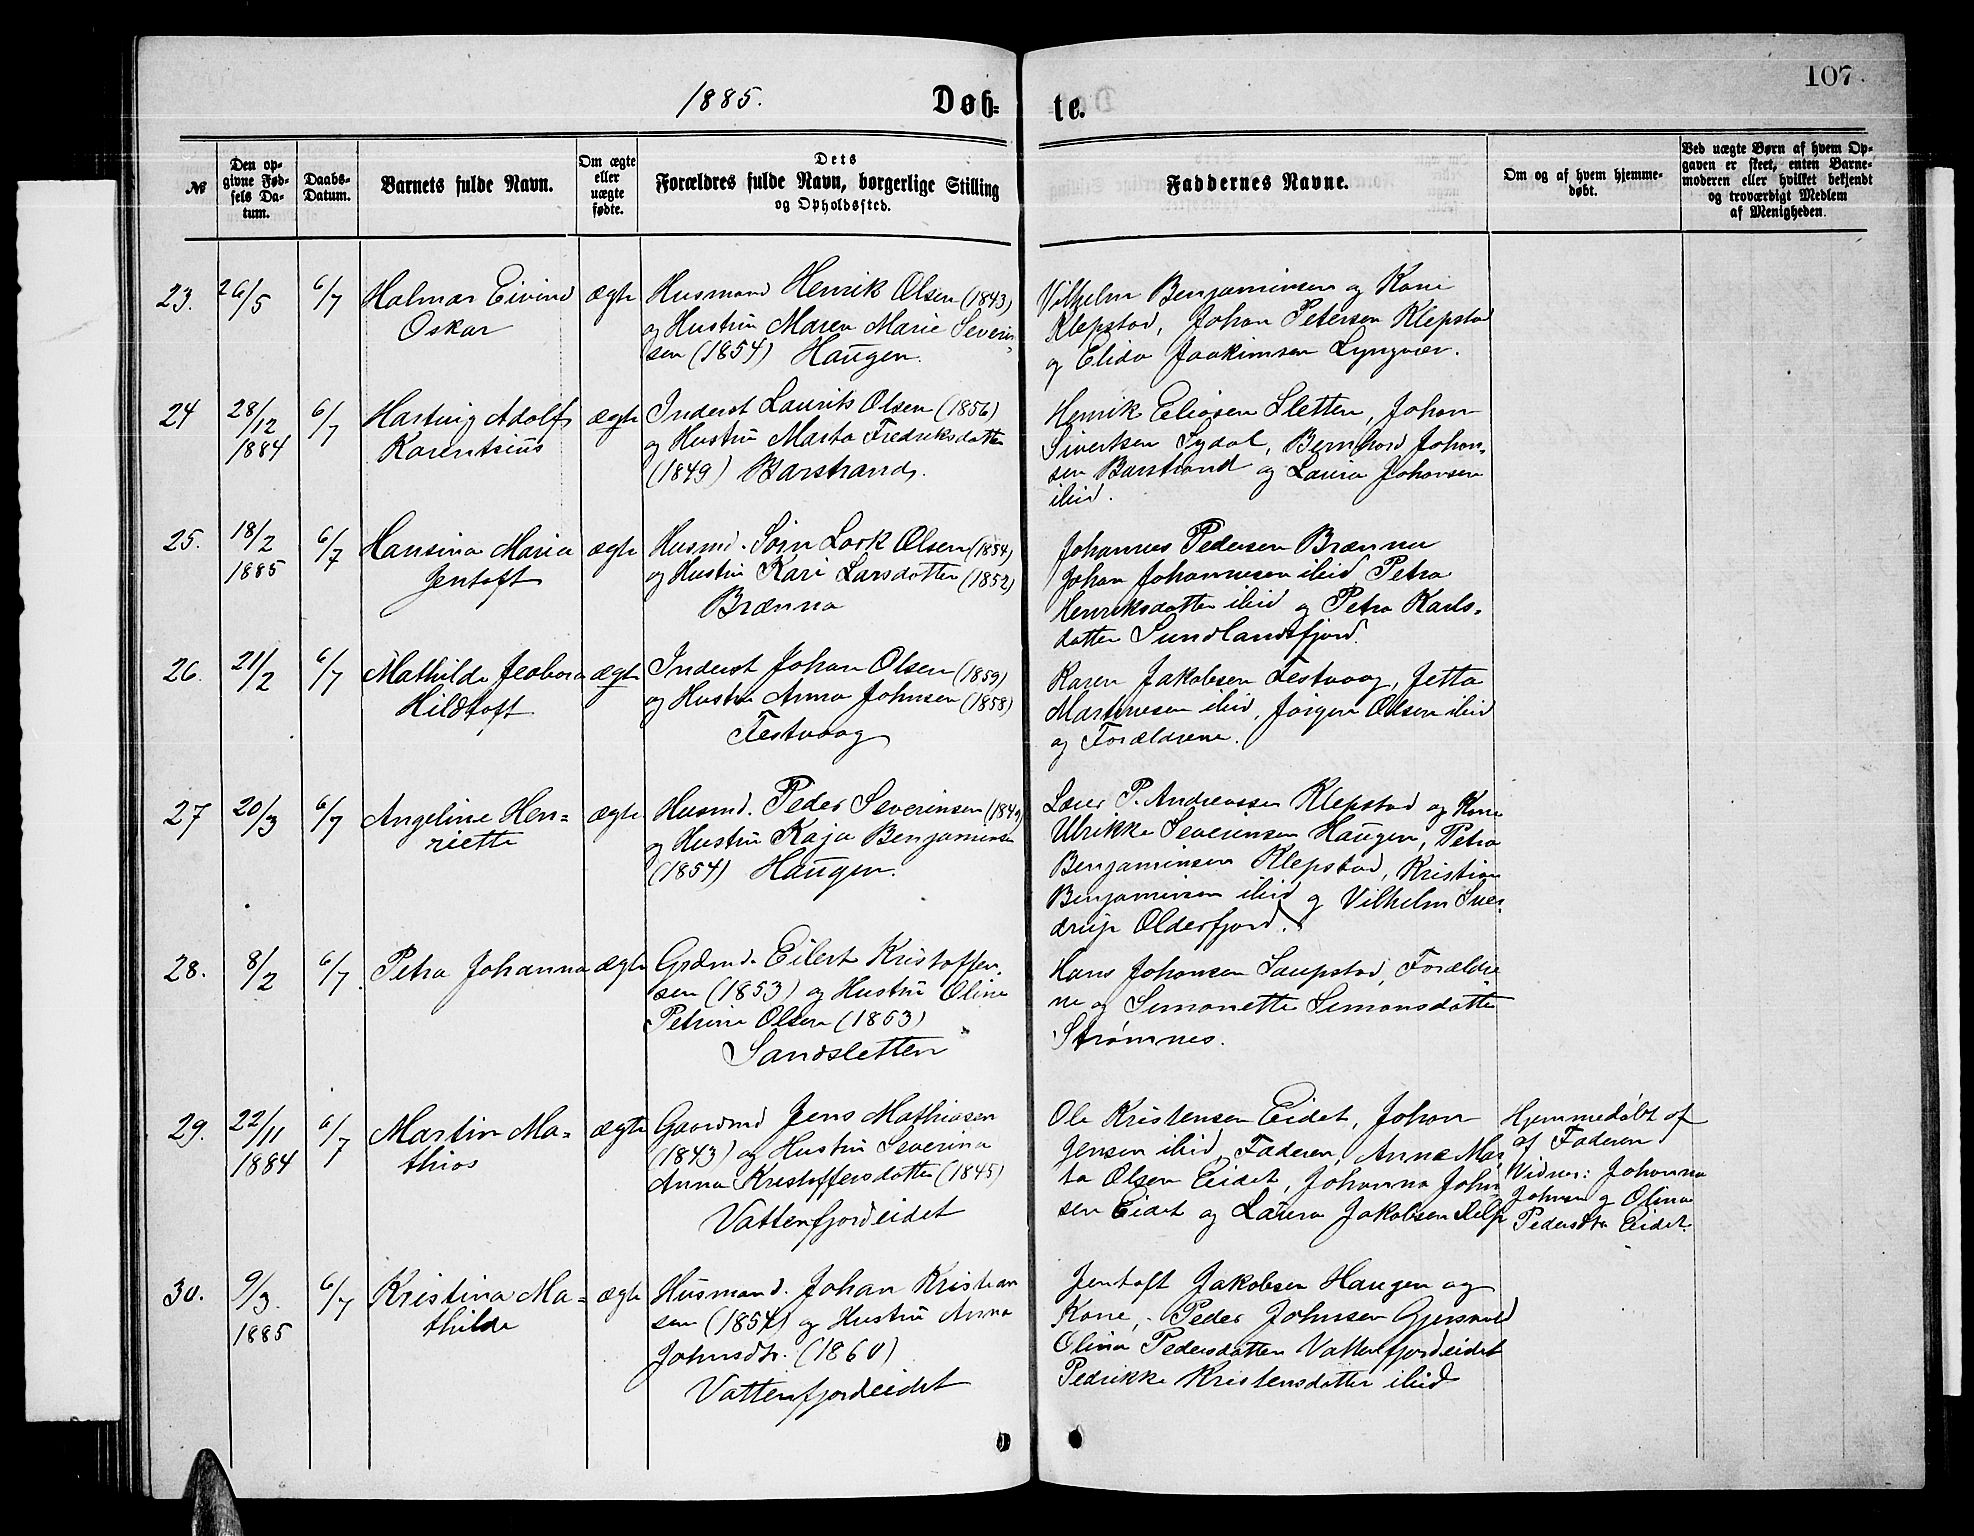 1885.
Døb-
te.
107
№
Den op-
givne Fød-
sels Da-
tum.
Daabs-
Datum.
Barnets fulde Navn.
Om ægte
eller
uægte
fødte.
Dets
Forældres fulde Navn, borgerlige Stilling
og Opholdssted.
Faddernes Navne.
Om og af hvem hjemme-
døbt.
Ved uægte Børn af hvem Op-
gaven er skeet, enten Barne-
moderen eller hvilket bekjendt
og troværdigt Medlem
af Menigheden.
23.
26/5
6/7
Halmar Eivind
Oskar
ægte
Husmand Henrik Olsen (1843)
og Hustru Maren Marie Severin-
sen (1854) Haugen.
Vilhelm Benjaminsen og Kone
Klepstad, Johan Petersen Klepstad
og Elida Joakimsen Lyngvær.
24
28/12
1884
6/7
Hartvig Adolf
Karentsius
ægte
Inderst Laurits Olsen (1856)
og Hustru Marta Fredriksdatter
(1849) Barstrand.
Henrik Eliasen Sletten, Johan
Sivertsen Sydal, Bernhard Johan-
sen Barstrand og Laura Johansen
ibid.
25.
18/2
1885
6/7
Hansina Maria
Jentoft
ægte
Husmd. Sørn Lork Olsen (1854)
og Hustru Kari Larsdatter (1852)
Brænna
Johannes Pedersen Brænna
Johan Johannesen ibid, Petra
Henriksdatter ibid og Petra Karls-
datter Sundlandsfjord.
26.
21/2
6/7
Mathilde Jeabora
Hildtoft
ægte
Inderst Johan Olsen (1859)
og Hustru Anna Johnsen (1858)
Festvaag
Karen Jakobsen Festvaag, Jetta
Martinesen ibid, Jørgen Olsen ibid
og Forældrene.
27
20/3
6/7
Angeline Hen-
riette
ægte
Husmd. Peder Severinsen (1849)
og Hustru Kaja Benjaminsen
(1854) Haugen.
Lærer P. Andreassen Klepstad og Kone
Ulrikke Severinsen Haugen, Petra
Benjaminsen Klepstad, Kristian
Benjaminsen ibid og Vilhelm Sver-
drup Olderfjord.
28.
8/2
6/7
Petra Johanna
ægte
Grdmd. Eilert Kristoffer-
sen (1853) og Hustru Oline
Petrine Olsen (1863)
Sandsletten
Hans Johansen Laupstad, Forældre-
ne og Simonette Simonsdatter
Strømnes.
29.
22/11
1884
6/7
Martin Ma-
thias
ægte
Gaardmd Jens Mathiasen
(1843) og Hustru Severina
Anna Kristoffersdatter (1845)
Vatterfjordeidet
Ole Kristensen Eidet, Johan
Jensen ibid, Faderen, Anna Mar
ta Olsen Eidet, Johanna John
sen Eidet og Laura Jakobsen
Hjemmedøbt af
af Faderen
Vidner: Johanna
Johnsen og Olina
Pedersdtr Eidet.
30.
9/3.
1885
6/7
Kristina Ma-
thilde
ægte
Husmand. Johan Kristian
sen (1854) og Hustru Anna
Johnsdtr. (1860)
Vatterfjordeidet
Jentoft Jakobsen Haugen og
Kone, Peder Johnsen
Olina Pedersdatter Vatterfjordeidet
Pedrikke Kristensdatter ibid